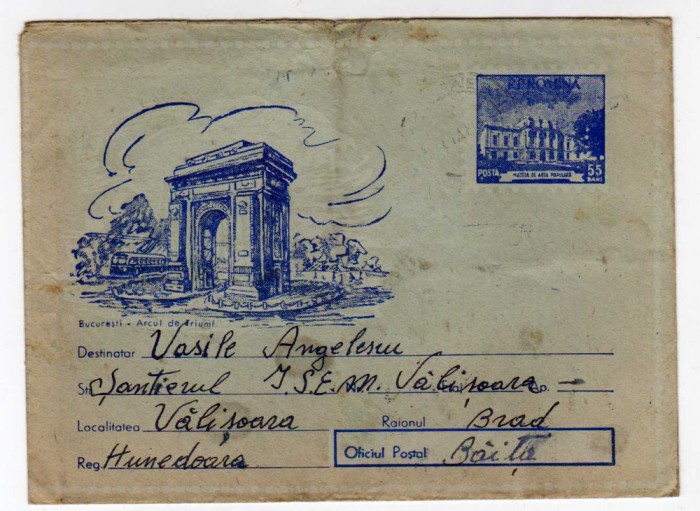 R.P. ROMINA
POSTA MUZEUL DE ARTA POPULARA 55 BANI
București - Arcul de Triumf
Destinatar Vasile Angelescu
Str. Șantierul I.S.E.M. Vălișoara Ap. —
Localitatea Vălișoara Raionul Brad
Reg. Hunedoara Oficiul Poștal Băița